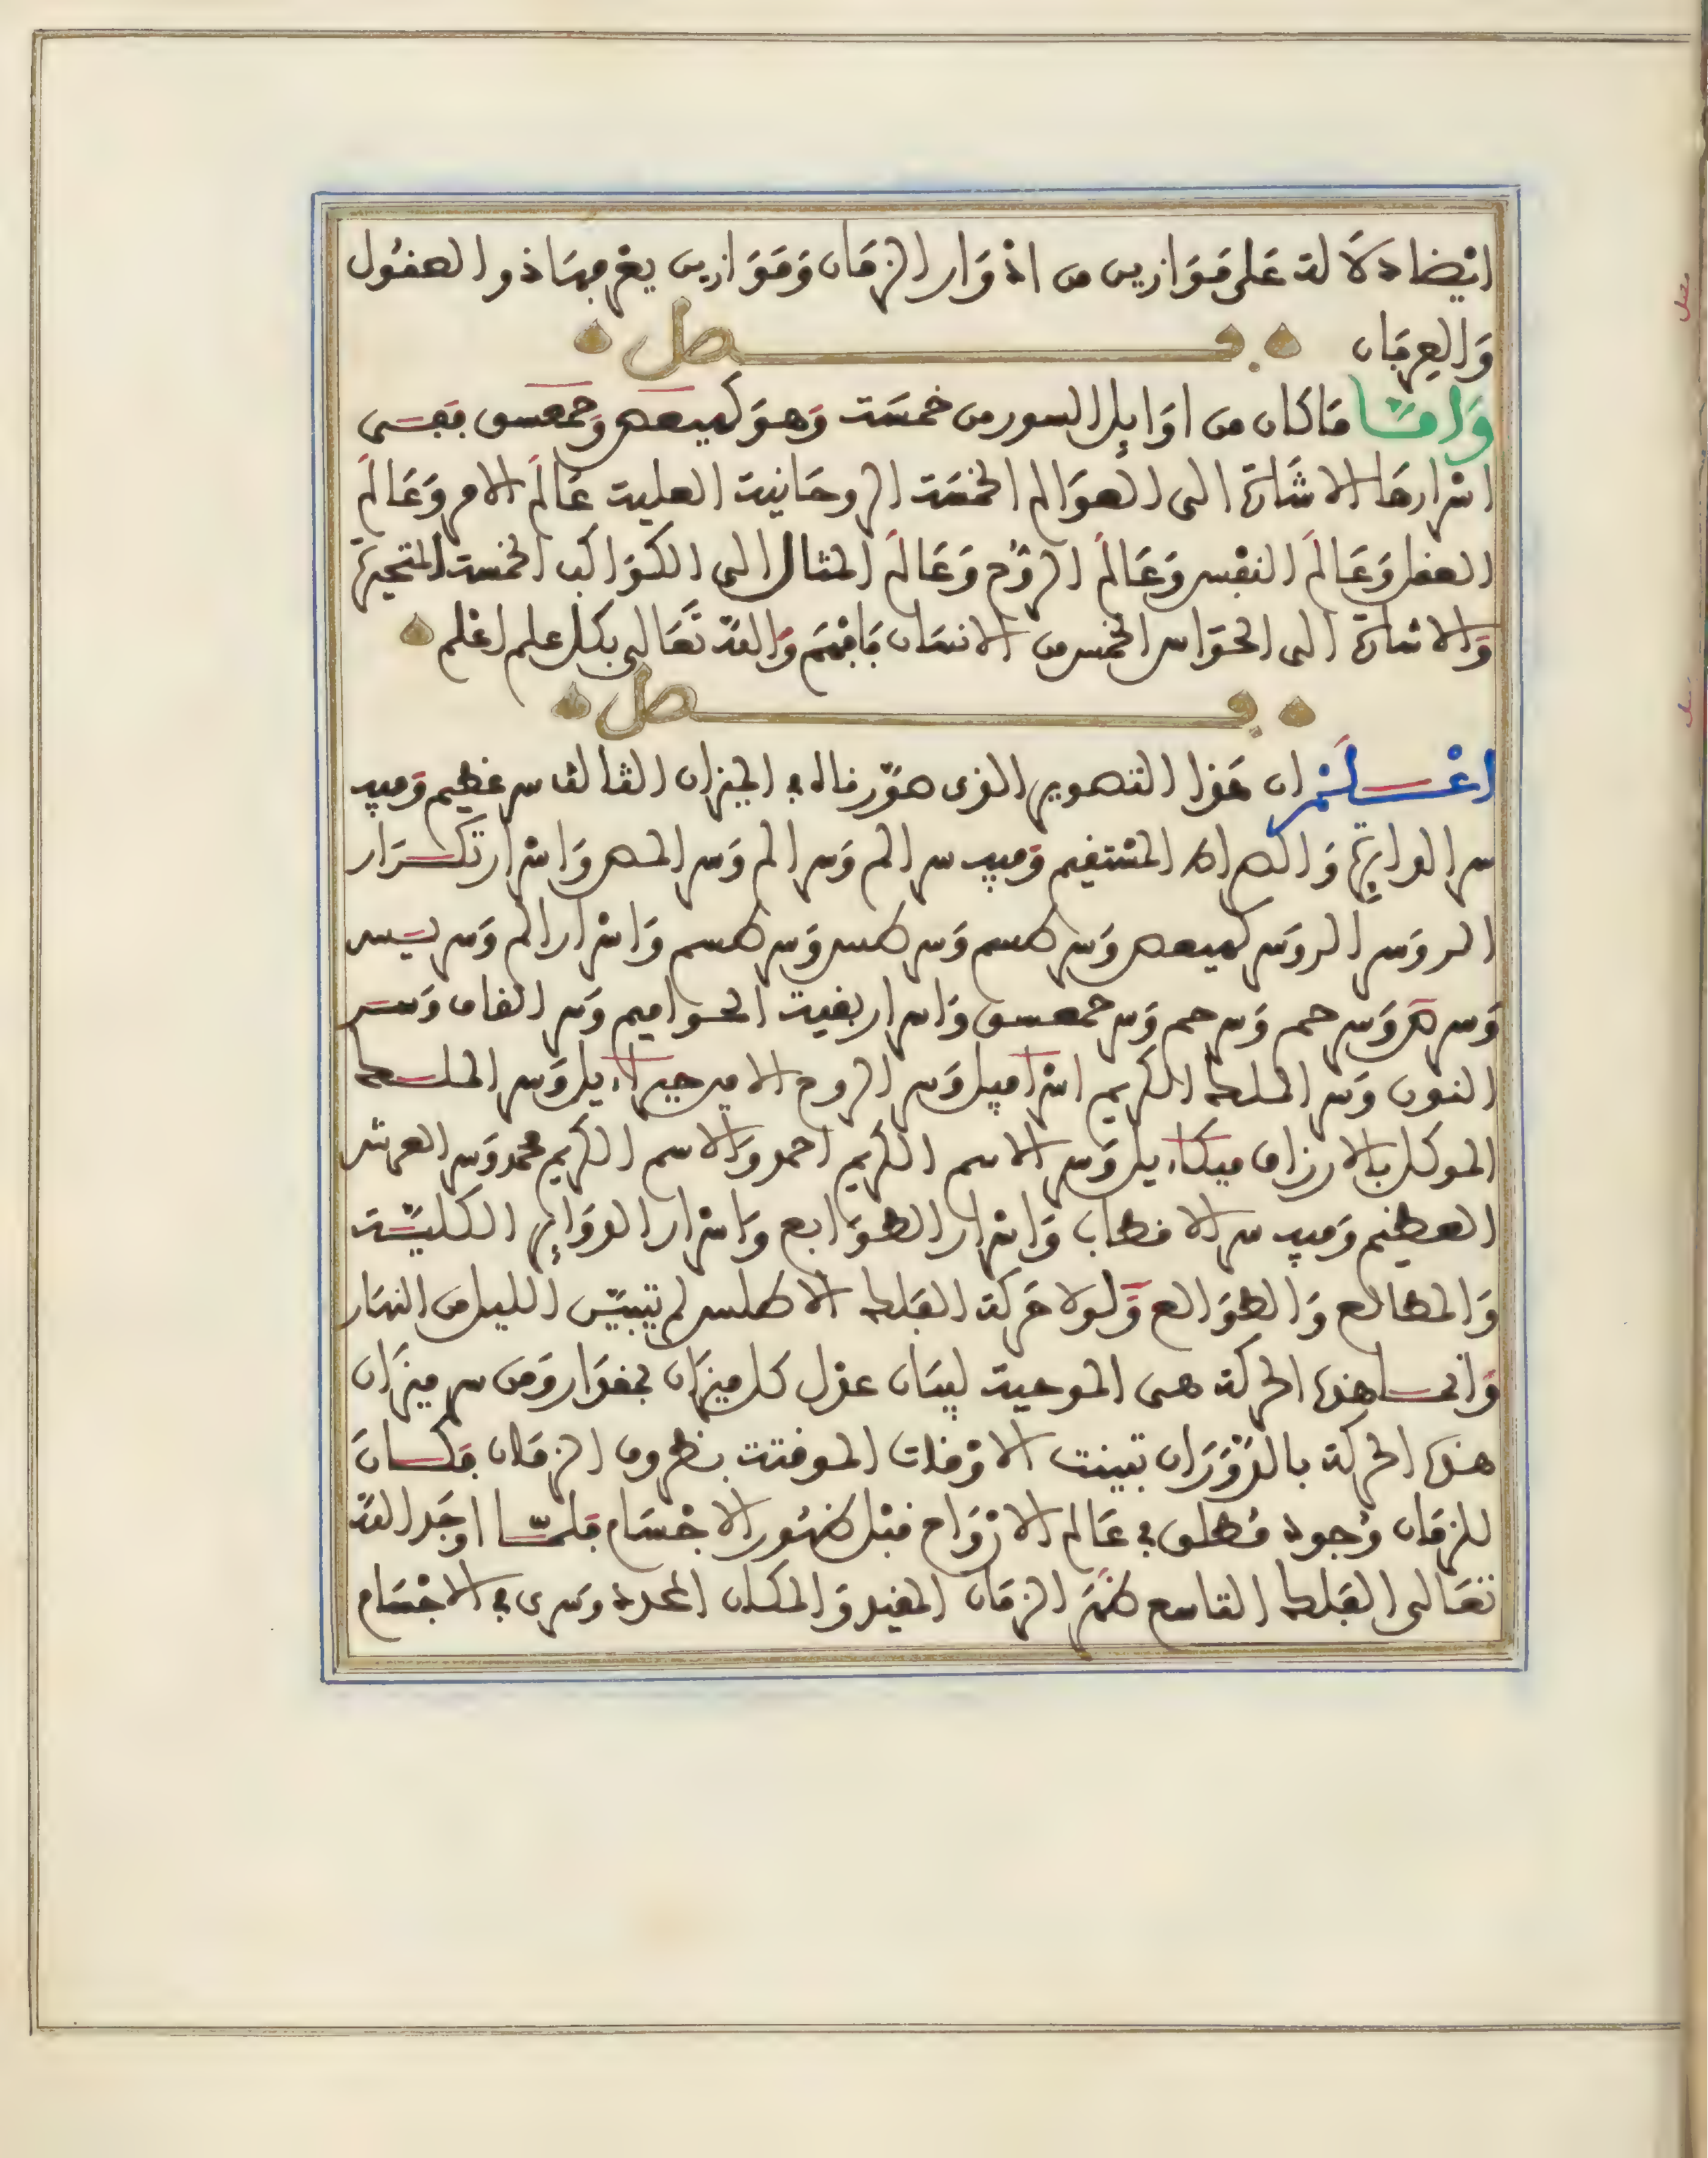 ايضا دلالة على موازين من ادوار الزمان وموازين يعرفها ذو العقول
والعرفان فصل
واما ما كان من اوايل السور من خمسة وهو كهيعص وحمعسق ففى
اسرارها الاشارة الى العوالم الخمسة الروحانية العلية عالم الامر وعالم
العقل وعالم النفس وعالم الروح وعالم المثال الى الكواكب الخمسة المتحيرة
والاشارة الى الحواس الخمس من الانسان فافهم والله تعالى بكل علم اعلم
فصل
اعلم ان هذا التصوير الذى صورناه فى الميزان الثالث سر عظيم وفيه
سر الدايرة والصراط المستقيم وفيه سر الم وسر الم وسر المص واسرار تكرار
الر وسر المر وسر كهيعص وسر طسم وسر طس وسر طسم واسرار الم وسر يس
وسر ص وسر حم وسر حم وسر حمعسق واسرار بقية الحواميم وسر القاف وسر
النون وسر الملك الكريم اسرافيل وسر الروح الامين جبرائيل وسر الملك
الموكل بالارزاق ميكائيل وسر الاسم الكريم احمد والاسم الكريم محمد وسر العرش
العظيم وفيه سر الاقطاب واسرار الطوابع واسرار الدواير الكلية
والمطالع والطوالع ولولا حركة الفلك الاطلس لم تبين الليل من النهار
وانما هذه الحركة هى الموجبة لبيان عدل كل ميزان بمقدار ومن سر ميزان
هذه الحركة بالدوران تبينت الاوقات الموقتة بظروف الزمان فكان
للزمان وجود مطلق فى عالم الارواح قبل ظهور الاجسام فلما اوجد الله
تعالى الفلك التاسع ظهر الزمان المقيد والمكان المحدد وسرى فى الاجسام